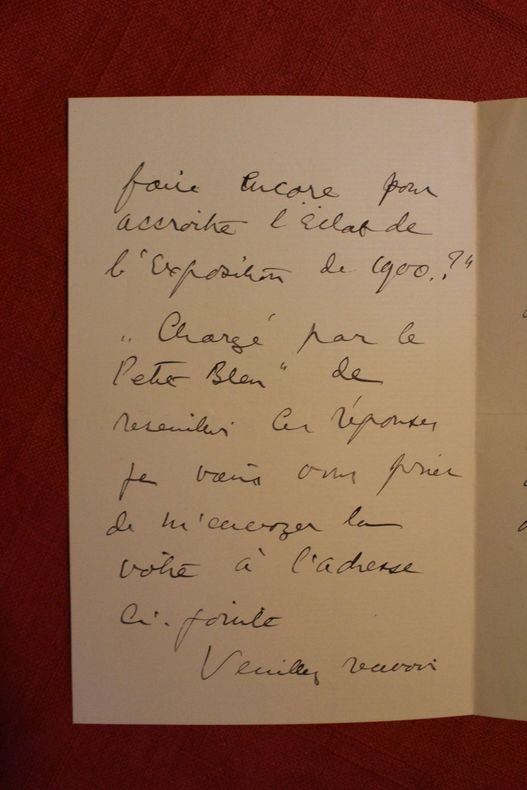 faire encore pour
accroitre l'Eclat de
l'Exposition de 1900..?"
" Chargé par le
Petit Bleu" de
recueillir les réponses
je viens vous prier
de m'envoyer la
votre à l'adresse
Ci-jointe
Veuillez recevoir